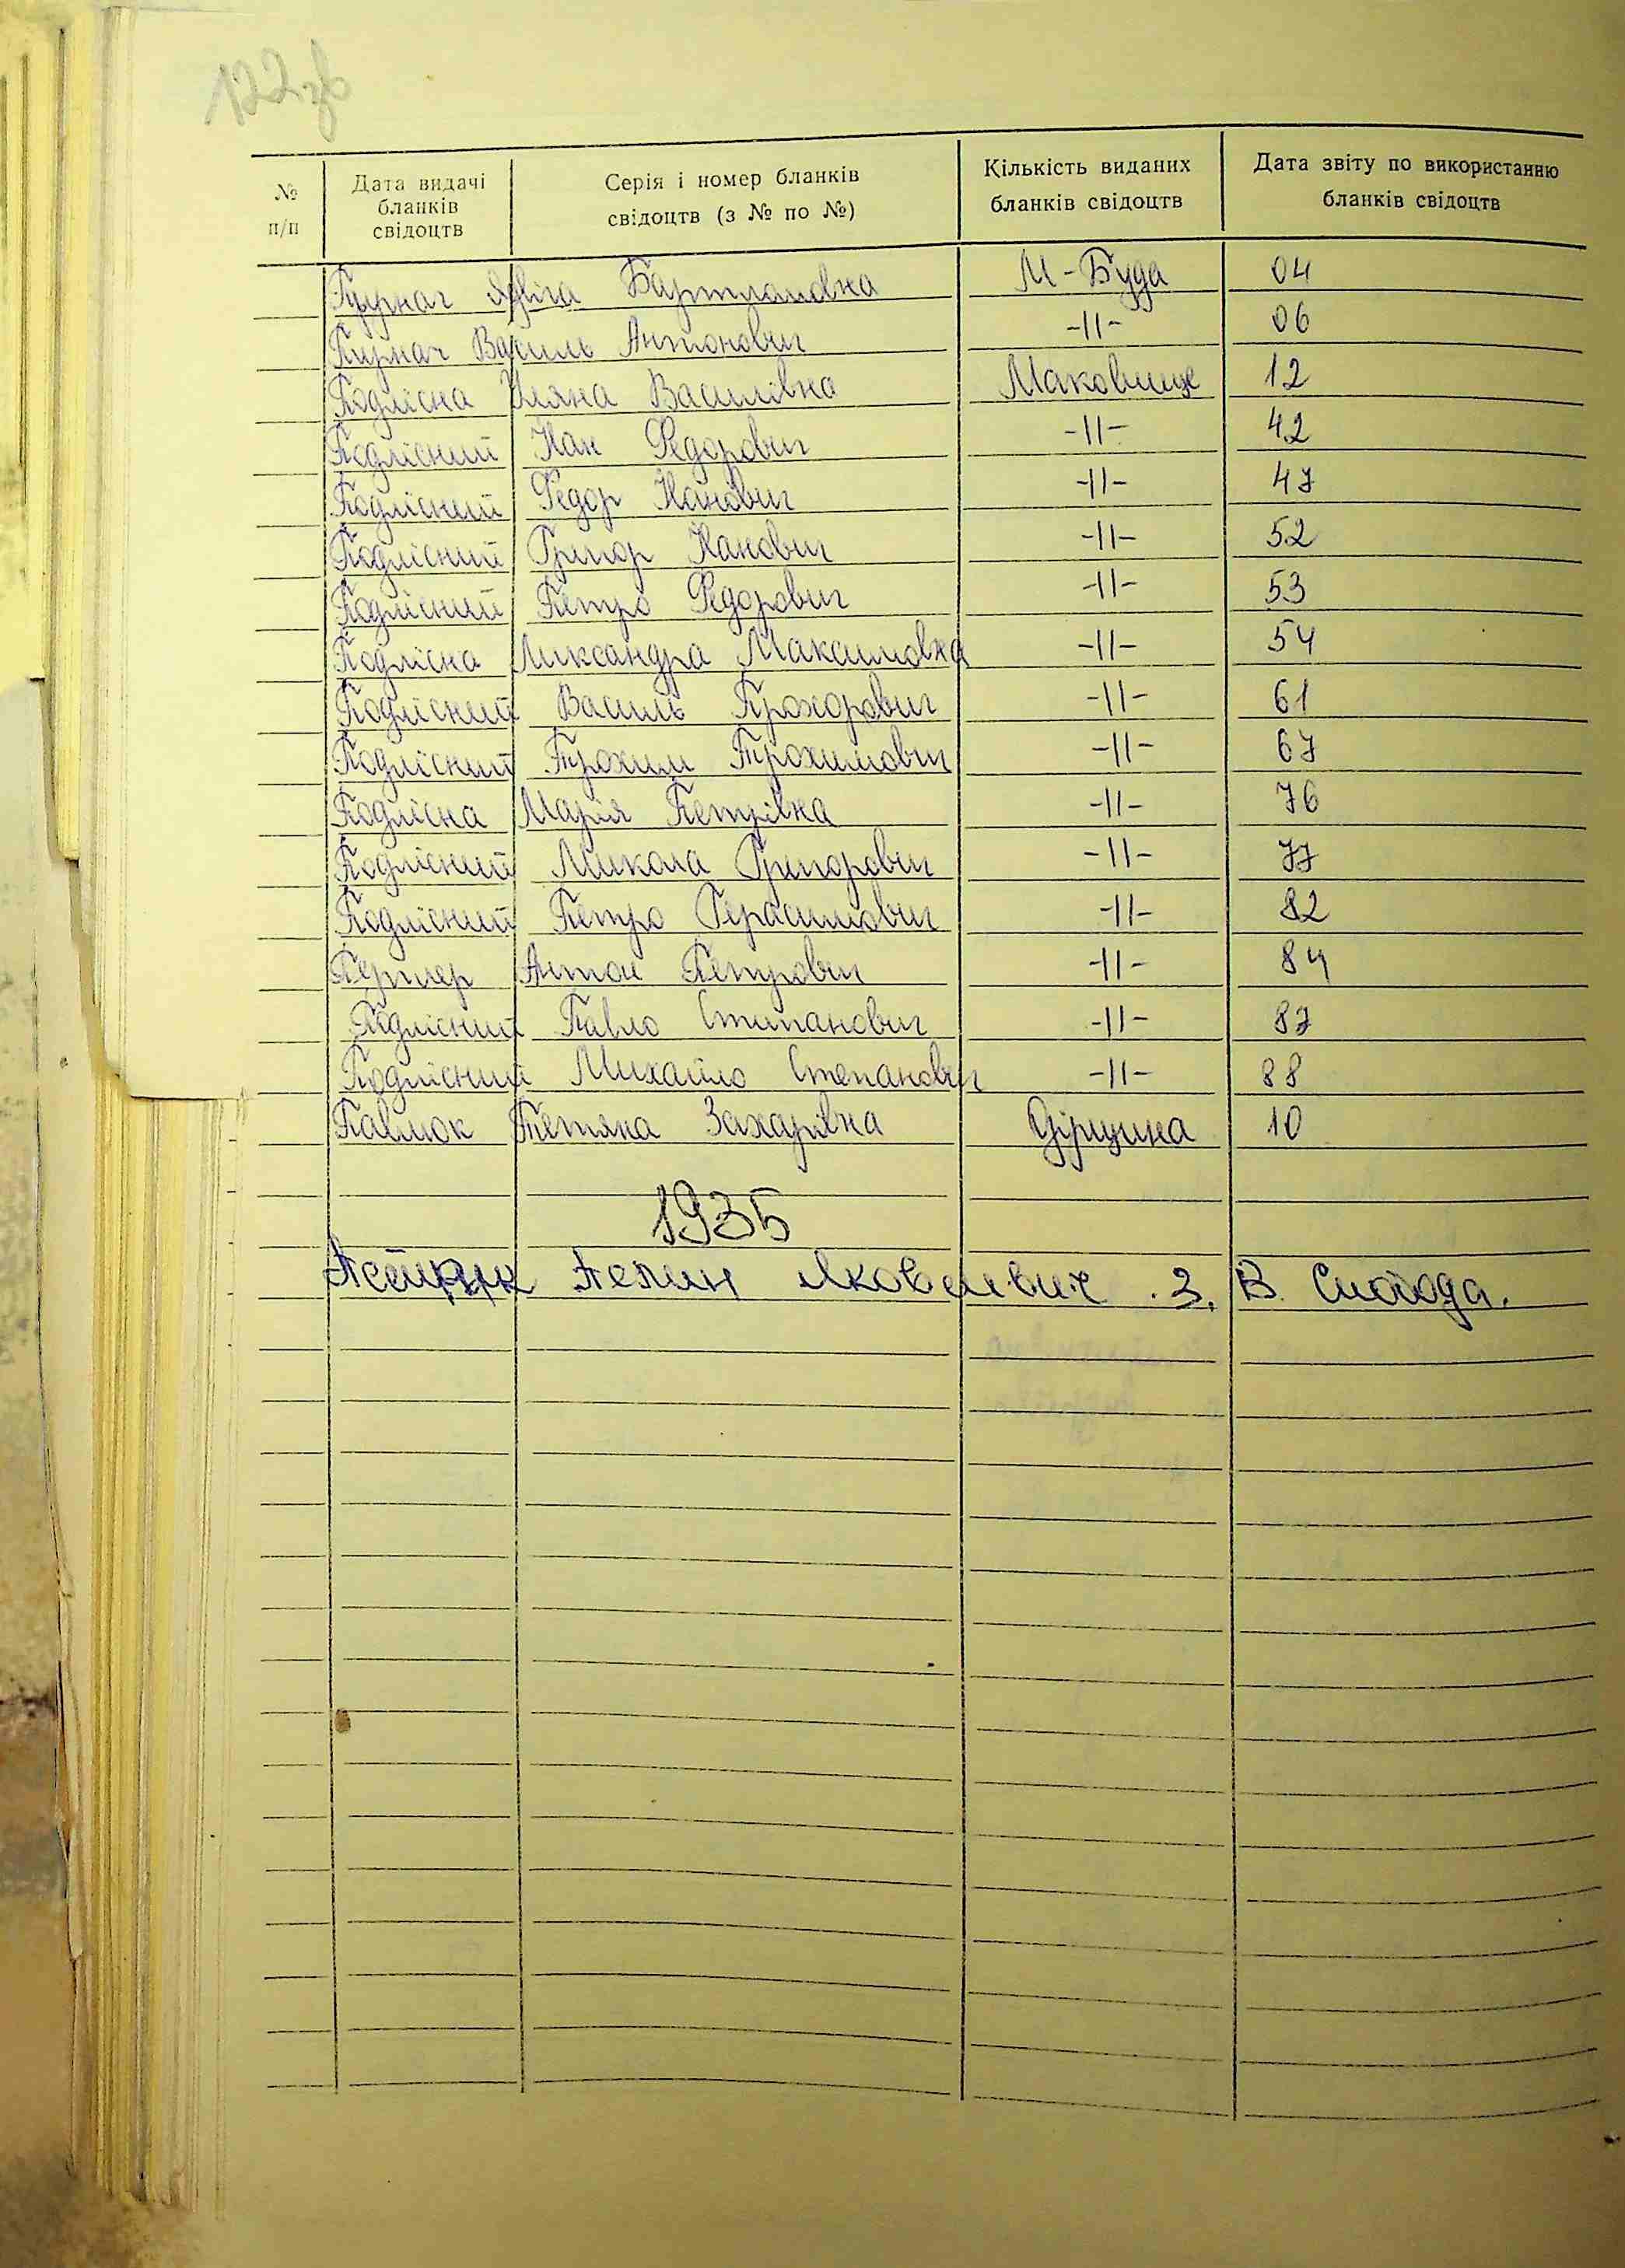 122зв
№ п/п
Дата видачі бланків свідоцтв
Серія і номер бланків свідоцтв (з № по №)
Кількість виданих бланків свідоцтв
Дата звіту по використанню бланків свідоцтв
Ядвіга М-Буда 04
Василь Антонович -||- 06
Подлісна Уляна Василівна Маковище 12
Подлісний Іван Федорович -||- 42
Подлісний Федор Іванович -||- 47
Подлісний Григор Іванович -||- 52
Подлісний Петро Федорович -||- 53
Подлісна Ликсандра Максимовна -||- 54
Подлісний Василь Прохорович -||- 61
Подлісний Трохим Трохимович -||- 67
Подлісна Марія Петрівна -||- 76
Подлісний Микола Григорович -||- 77
Подлісний Петро Герасимович -||- 82
Антон Петрович -||- 84
Подлісний Павло Степанович -||- 87
Подлісний Михайло Степанович -||- 88
Павлюк Тетяна Захарівна 10
1935
Яковлевич . 3. В. Слобода.